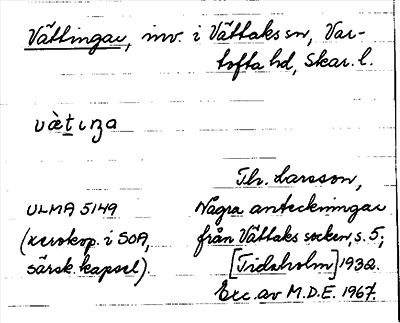 Vättingar, inv. i Vättaks sn, Var-
tofta hd, Skar. l.
vàt̲ıŋa
Th. Larsson,
ULMA 5149 Några anteckningar
(xerokop. i SOA, från Vättaks socken, s. 5,
särsk. kapsel). [Tidaholm] 1932.
Exc. av M.D.E. 1967.